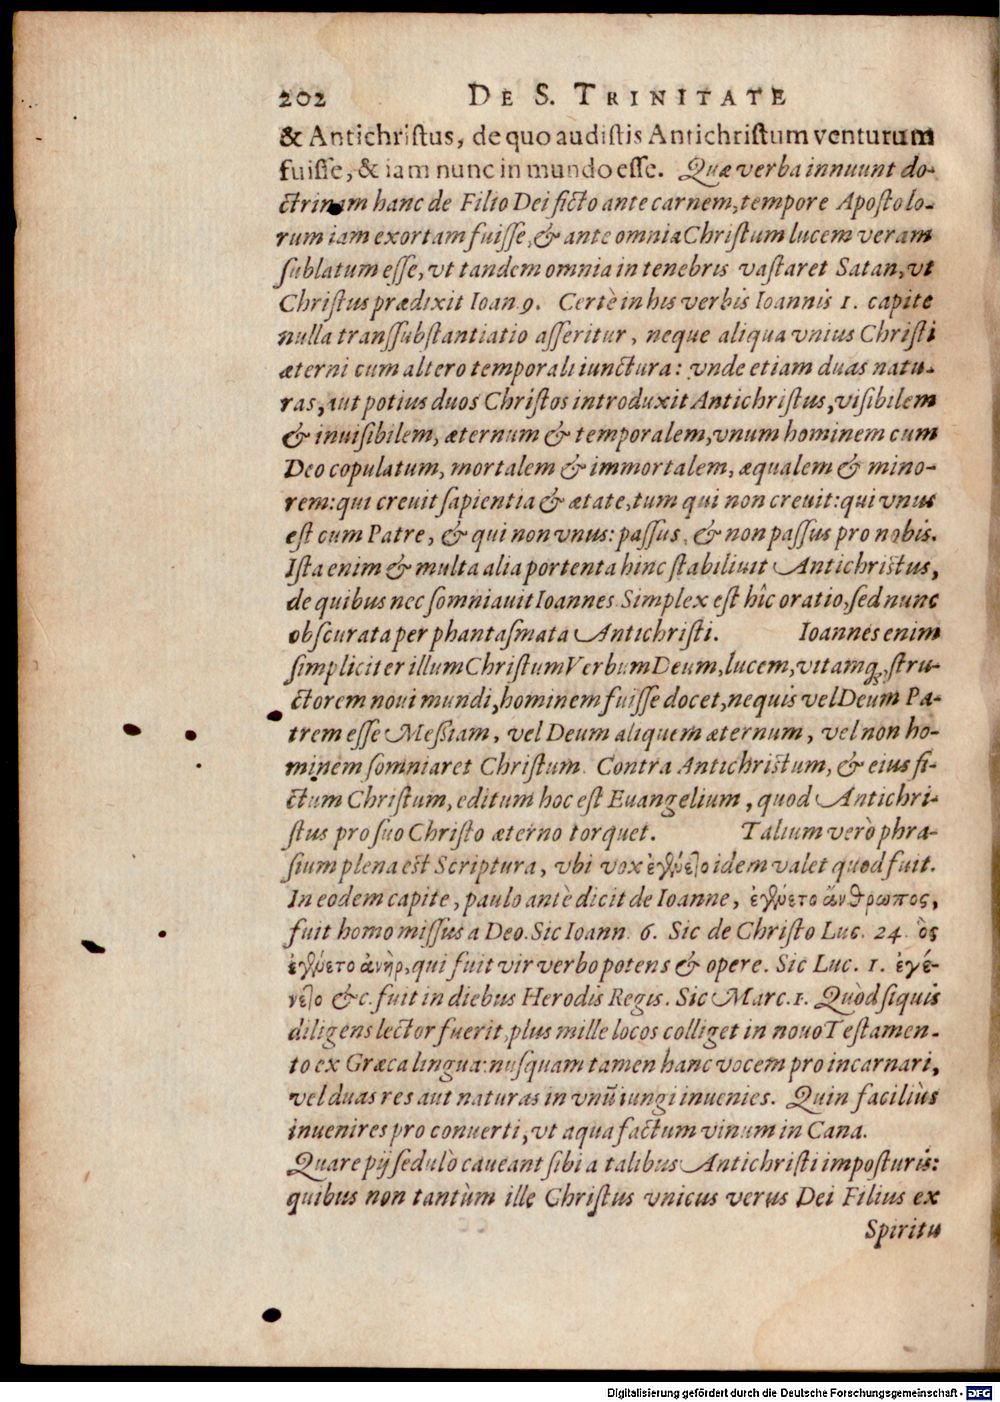 202 DE S. TRINITATE
& Antichriſtus, de quo audiſtis Antichriſtum venturum
fuiſſe, & iam nunc in mundo eſſe. Quæ verba innuunt do-
ctrinam hanc de Filio Dei ficto ante carnem, tempore Apoſtolo-
rum iam exortam fuiſſe, & ante omnia Chriſtum lucem veram
ſublatum eſſe, vt tandem omnia in tenebris vaſtaret Satan, vt
Chriſtus prædixit Ioan. 9. Certè in his verbis Ioannis 1. capite
nulla transſubſtantiatio aſſeritur, neque aliqua vnius Chriſti
æterni cum altero temporali iunctura: vnde etiam duas natu-
ras, aut potius duos Chriſtos introduxit Antichriſtus, viſibilem
& inuiſibilem, æternum & temporalem, vnum hominem cum
Deo copulatum, mortalem & immortalem, æqualem & mino-
rem: qui creuit ſapientia & ætate, tum qui non creuit: qui vnus
eſt cum Patre, & qui non vnus: paſſus, & non paſſus pro nobis.
Iſta enim & multa alia portenta hinc ſtabiliuit Antichriſtus,
de quibus nec ſomniauit Ioannes. Simplex eſt hîc oratio, ſed nunc
obſcurata per phantaſmata Antichriſti. Ioannes enim
ſimpliciter illum Chriſtum Verbum Deum, lucem, vitamq́;, ſtru-
ctorem noui mundi, hominem fuiſſe docet, nequis vel Deum Pa-
trem eſſe Meſsiam, vel Deum aliquem æternum, vel non ho-
minem ſomniaret Chriſtum. Contra Antichriſtum, & eius fi-
ctum Chriſtum, editum hoc eſt Euangelium, quod Antichri-
ſtus pro ſuo Chriſto æterno torquet. Talium verò phra-
ſium plena eſt Scriptura, vbi vox ἐγένετο idem valet quod fuit.
In eodem capite, paulo antè dicit de Ioanne, ἐγένετο ἄνθρωπος,
fuit homo miſſus a Deo. Sic Ioann. 6. Sic de Chriſto Luc. 24. ὃς
ἐγένετο ἀνὴρ, qui fuit vir verbo potens & opere. Sic Luc. 1. ἐγέ-
νετο &c. fuit in diebus Herodis Regis. Sic Marc. 1. Quòd ſiquis
diligens lector fuerit, plus mille locos colliget in nouo Teſtamen-
to ex Græca lingua: nuſquam tamen hanc vocem pro incarnari,
vel duas res aut naturas in vnū iungi inuenies. Quin faciliùs
inuenires pro conuerti, vt aqua factum vinum in Cana.
Quare pij ſedulò caueant ſibi a talibus Antichriſti impoſturis:
quibus non tantùm ille Chriſtus vnicus verus Dei Filius ex
Spiritu
Digitalisierung gefördert durch die Deutsche Forschungsgemeinschaft - DFG